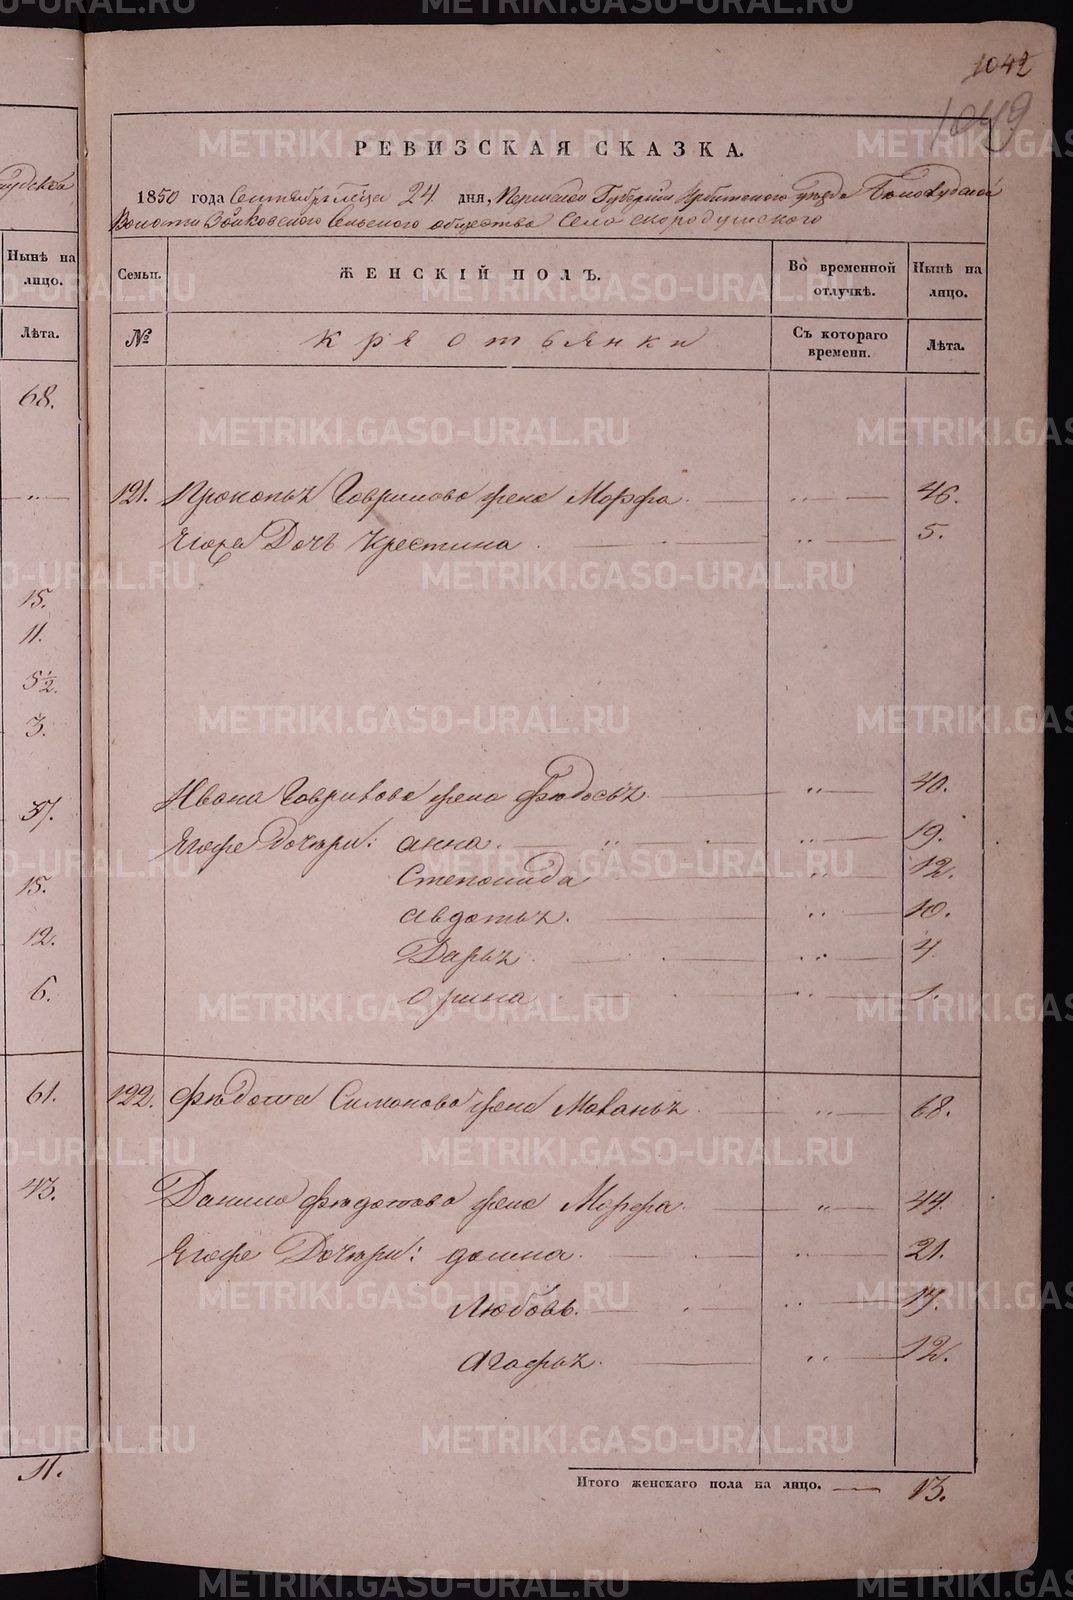 1042
1049
РЕВИЗСКАЯ СКАЗКА.
1850 года Сентября м-ца 24 дня, Пермской Губернии Ирбитского уезда Белослудской
Волости Зайковского Сельского общества Села скородумского
Семьи. ЖЕНСКІЙ ПОЛЪ. Во временной отлучкѣ. Нынѣ на лицо.
№ крестьянки Съ котораго времени. Лѣта.
121. Прокопья Гаврилова жена Марфа 46.
Ягора Дочь Крестина 5.
Ивана Гаврилова жена Федосья 40.
Ягоже Дочери: анна 19.
Степонида 12.
Авдотья 10.
Дарья 4.
орина 1.
122. Федота Симонова жена Маланья 68.
Данила Федотова жена Марфа 44.
Ягоже Дочери: домна 21.
Любовь. 17.
Агафья. 12.
Итого женскаго пола на лицо. 13.
Нынѣ на лицо.
Лѣта.
68.
15.
11.
5½.
3.
37.
15.
12.
6.
61.
43.
11.
METRIKI.GASO-URAL.RU